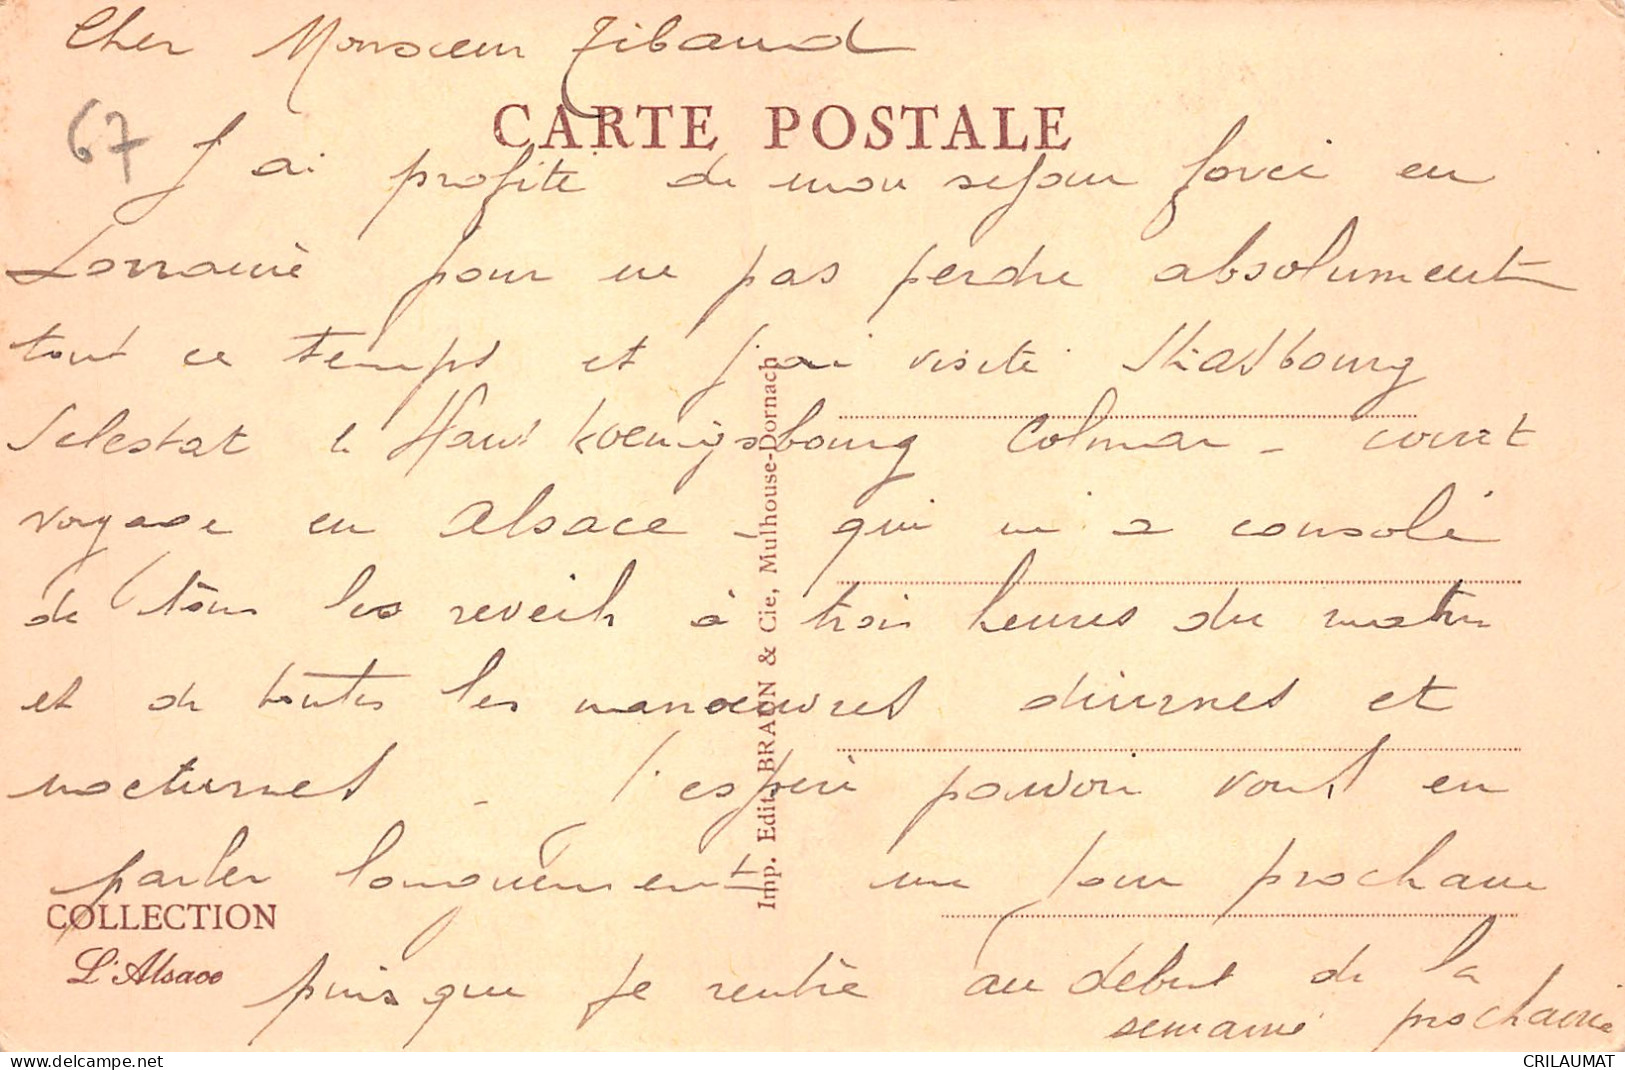 Cher Monsieur Tibaud
CARTE POSTALE
67
J'ai profité de mon sejour forcé en
Lorraine pour ne pas perdre absolument
tout ce temps et j'ai visité Strasbourg
Selestat le Haut Koenigsbourg Colmar - court
voyage en Alsace - qui m'a consolé
de tous les reveils à trois heures du matin
et de toutes les manoeuvres diurnes et
nocturnes - J'espère pouvoir vous en
parler longuement un jour prochain
puisque je rentre au debut de la
semaine prochaine
COLLECTION
L'Alsace
Imp. Edit. BRAUN & Cie, Mulhouse-Dornach
www.delcampe.net
CRILAUMAT